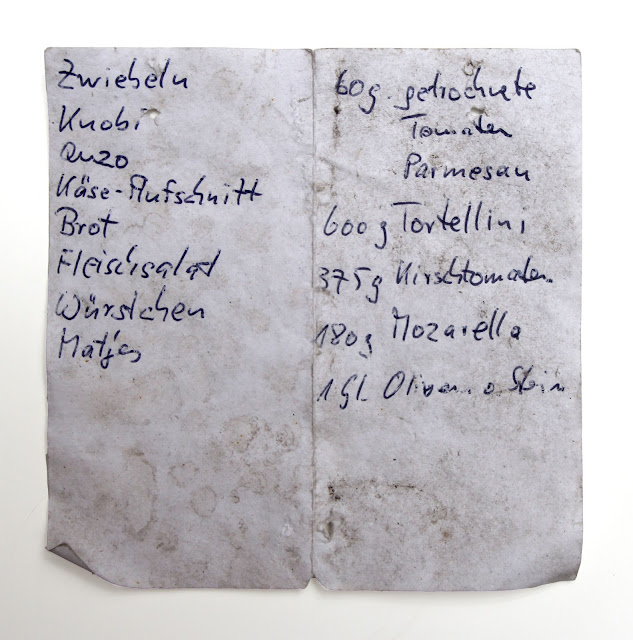 Zwiebeln
Knobi
Ouzo
Käse-Aufschnitt
Brot
Fleischsalat
Würstchen
Matjes
60g getrochnete
Tomaten
Parmesan
600g Tortellini
375g Kirschtomaten
180g Mozarella
1 Gl. Oliven o Stein